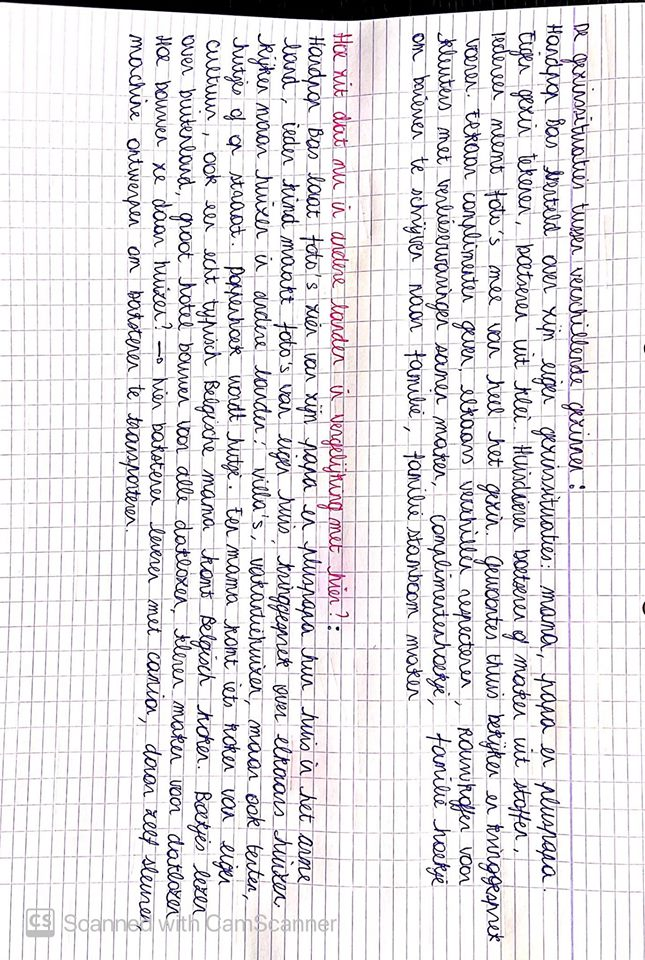 De gezinssituaties tussen verschillende gezinnen:
Handpop Bas vertelt over zijn eigen gezinssituaties: mama, papa en pluspapa.
Eigen gezin tekenen, boetseren uit klei. Huisdieren boetseren of maken uit stoffen,
Iedereen neemt foto's mee van heel het gezin. Gewoontes thuis bekijken en kringgesprek
voeren. Elkaar complimenten geven, elkaars verschillen respecteren, rouwkoffer voor
kleuters met verlieservaringen samen maken, complimentenhoekje, familie hoekje
om brieven te schrijven naar familie, familie stamboom maken
Hoe zit dat nu in andere landen in vergelijking met hier?:
Handpop Bas laat foto's zien van zijn papa en pluspapa hun huis in het arme
land, ieder kind maakt foto's van eigen huis, kringgesprek over elkaars huizen.
kijken naar huizen in andere landen: villa's, vakantiehuizen, maar ook tenten,
hutjes of op straat. Poppenhoek wordt hutje. Een mama komt iets koken van eigen
cultuur, ook een echt typisch Belgische mama komt Belgisch koken. Boekjes lezen
over buitenland, groot hotel bouwen voor alle daklozen, kleren maken voor daklozen
Hoe bouwen ze daar huizen? → hier bakstenen leveren met camion, daar zelf sleuren,
machine ontwerpen om bakstenen te transporteren.
CS Scanned with CamScanner